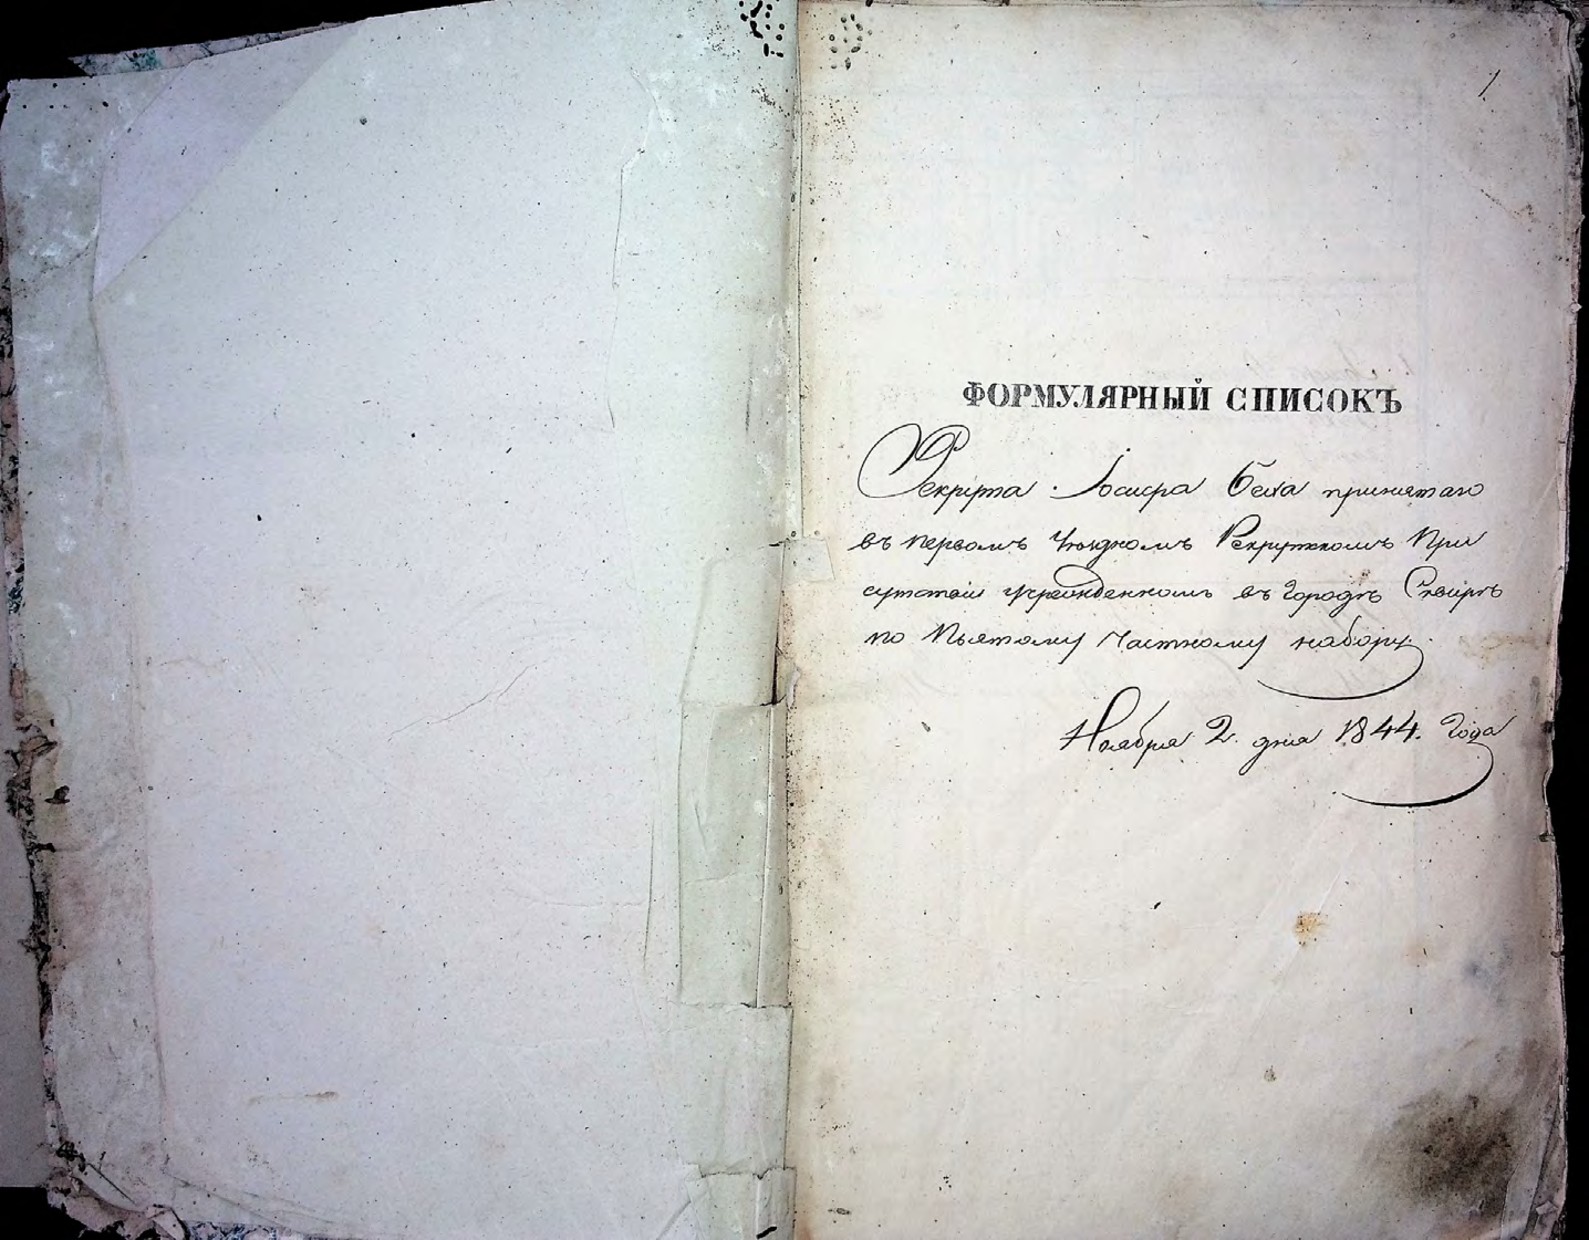 1
ФОРМУЛЯРНЫЙ СПИСОКЪ
Рекрута Іосифа Беха принятаго
въ первомъ Уѣздномъ Рекрутскомъ При
сутствіи учрежденномъ въ городѣ Сквирѣ
по Пьятому Частному набору.
Ноября 2. дня 1844. Года